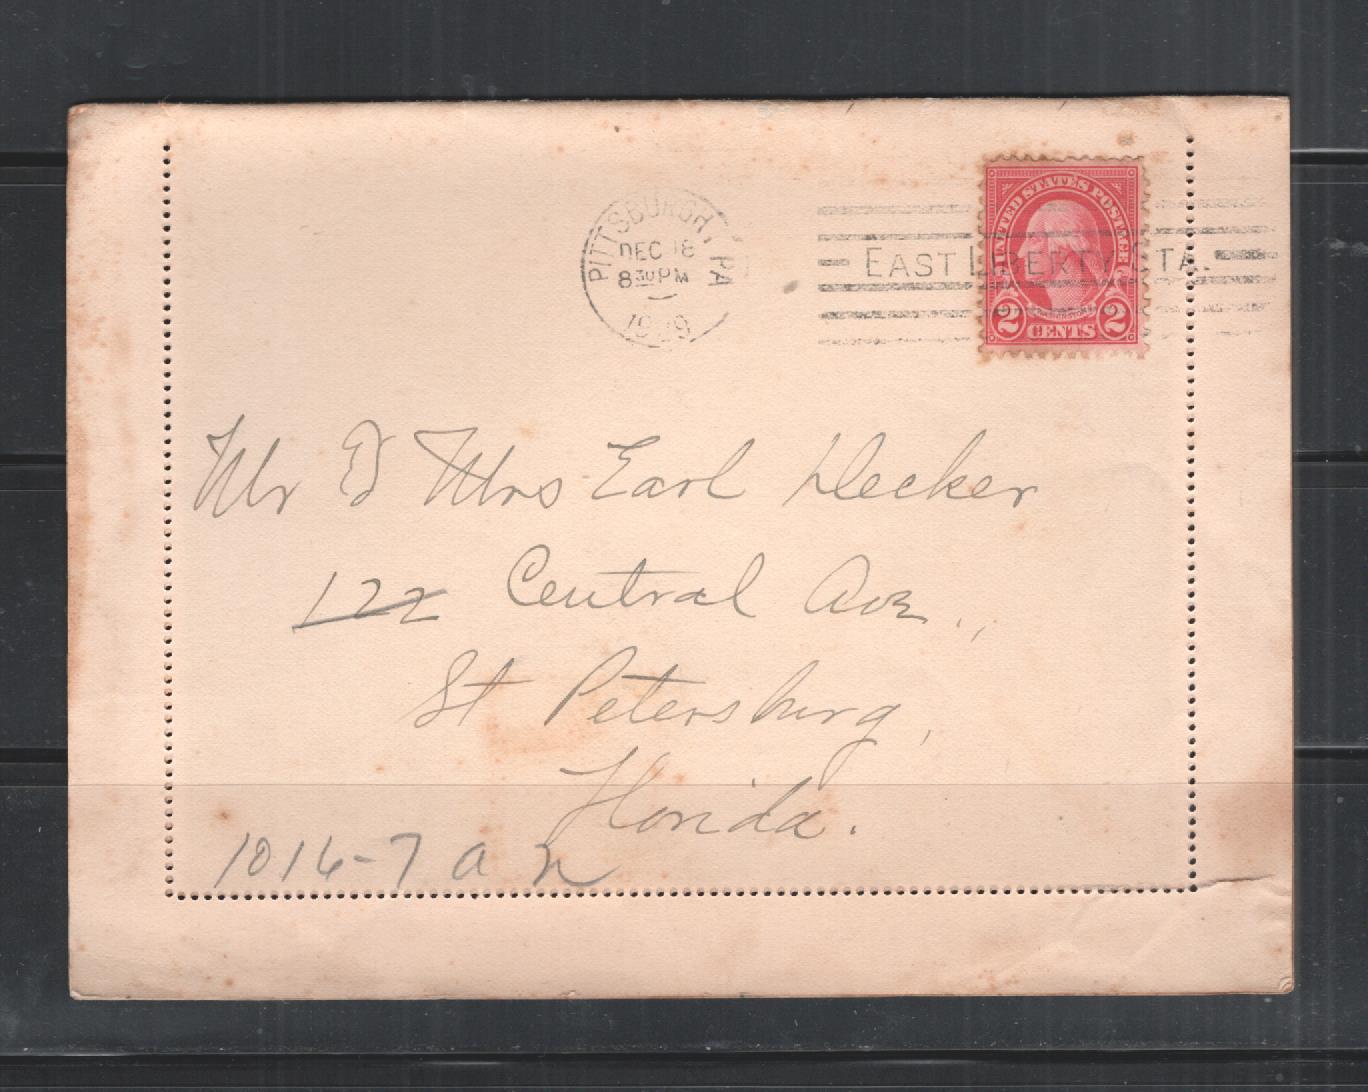 PITTSBURGH, PA
DEC 18
8 30 PM
1929
EAST LIBERTY STA.
UNITED STATES POSTAGE
WASHINGTON
2 CENTS 2
Mr & Mrs Earl Decker
122 Central Ave.,
St Petersburg,
Florida.
1016-7 a n